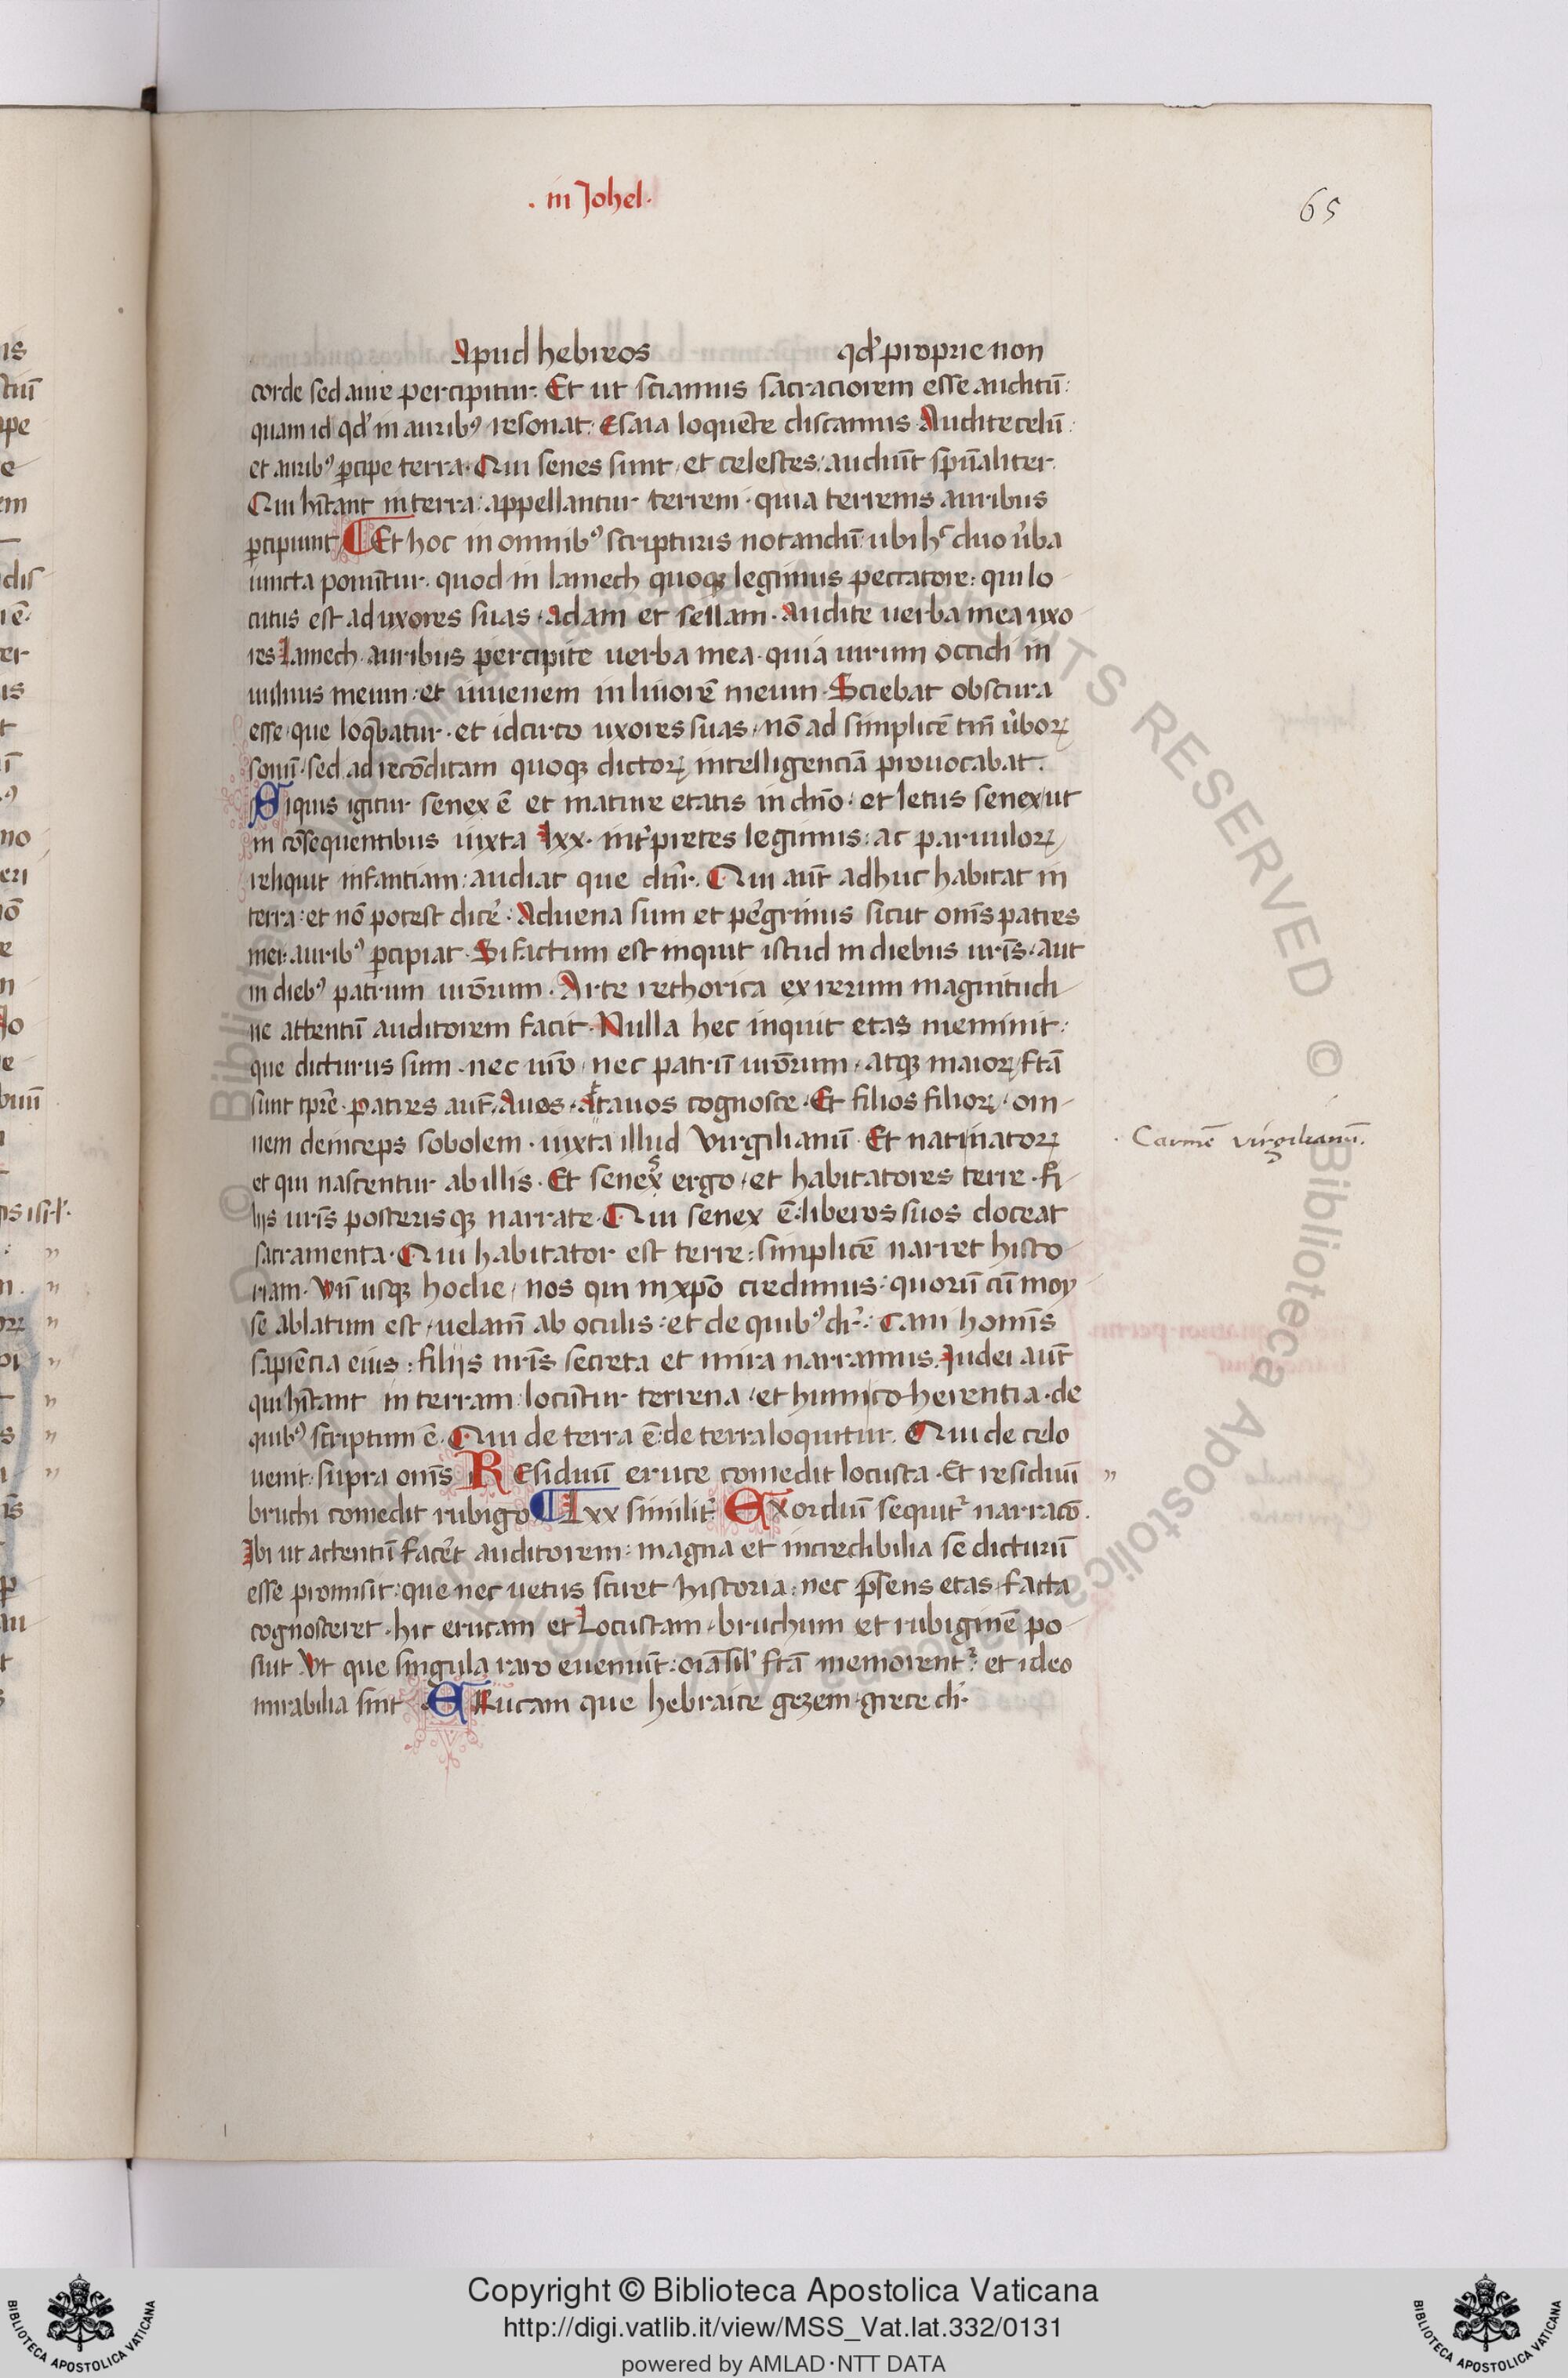 . in Johel .
65
Apud hebreos qd' proprie non
corde sed aure percipitur. Et ut sciamus sacraciorem esse auditū:
quam id qd' in aurib⁹ resonat. Esaia loquēte discamus. Audite celū:
et aurib⁹ ꝑcipe terra. Qui senes sunt, et celestes, audiūt spūaliter.
Qui hītant in terra: appellantur terreni. quia terrenis auribus
ꝑcipiunt. Et hoc in omnib⁹ scripturis notandū ubi hᶜ duo ūba
iuncta ponūtur. quod in lamech quoqꝫ legimus peccatore: qui lo
cutus est ad uxores suas. Adam et sellam. Audite uerba mea uxo
res Lamech. auribus percipite uerba mea. quia uirum occidi in
uulnus meum: et iuuenem in liuorē meum. Sciebat obscura
esse que loq̄batur. et idcirco uxores suas, nō ad simplicē tm̄ ūboꝝ
sonū. sed ad recōditam quoqꝫ dictoꝝ intelligenciā prouocabat.
Siquis igitur senex ē et mature etatis in chr̄o. et letus senex ut
in cōsequentibus iuxta lxx. int̄pretes legimus: ac paruuloꝝ
reliquit infantiam: audiat que dn̄r. Qui aūt adhuc habitat in
terra: et nō potest dicē. Aduena sum et peregrinus sicut om̄s patres
mei: aurib⁹ ꝑcipiat. Si factum est inquit istud in diebus ur̄is. aut
in dieb⁹ patrum ur̄orum. Arte rethorica ex rerum magnitudi
ne attentū auditorem facit. Nulla hec inquit etas meminit:
que dicturus sum. nec ur̄o, nec patrū ur̄orum, atqꝫ maioꝝ ftā
sunt tꝑre. patres aut̄. Auos. Atauos cognosce. Et filios filioꝝ. om
nem deinceps sobolem. iuxta illud Virgilianū. Et nati natoꝝ
et qui nascentur ab illis. Et senex ergo, et habitatores terre. fi
lijs ur̄is posterisqꝫ narrate. Qui senex ē. liberos suos doceat
sacramenta. Qui habitator est terre: simplicē narret histo
riam. Vn̄ usqꝫ hodie, nos qui in xp̄o credimus: quorū cū moy
se ablatum est, uelam̄ ab oculis: et de quib⁹ dr̄: Cani homīs
sapiēcia eius: filijs nr̄is secreta et mira narramus. Judei aūt
qui hītant in terram: locūtur terrena, et humi coherentia. de
quib⁹ scriptum ē. Qui de terra ē: de terra loquitur. Qui de celo
uenit: supra om̄s. Residuū eruce comedit locusta. Et residuū
bruchi comedit rubigo. Lxx similit̄. Exordiū sequit̄ narracō.
Ibi ut attentū facēt auditorem: magna et incredibilia se dicturū
esse promisit: que nec uetus sciret historia: nec p̄sens etas facta
cognosceret. hic erucam et Locustam, bruchum et rubiginē po
suit. Vt que singula raro eueniūt: oīa sil' ftā memorent̄: et ideo
mirabilia sint. ERucam que hebraice gezem. grece dr̄.
Carmē virgilianū.
Copyright © Biblioteca Apostolica Vaticana
http://digi.vatlib.it/view/MSS_Vat.lat.332/0131
powered by AMLAD·NTT DATA